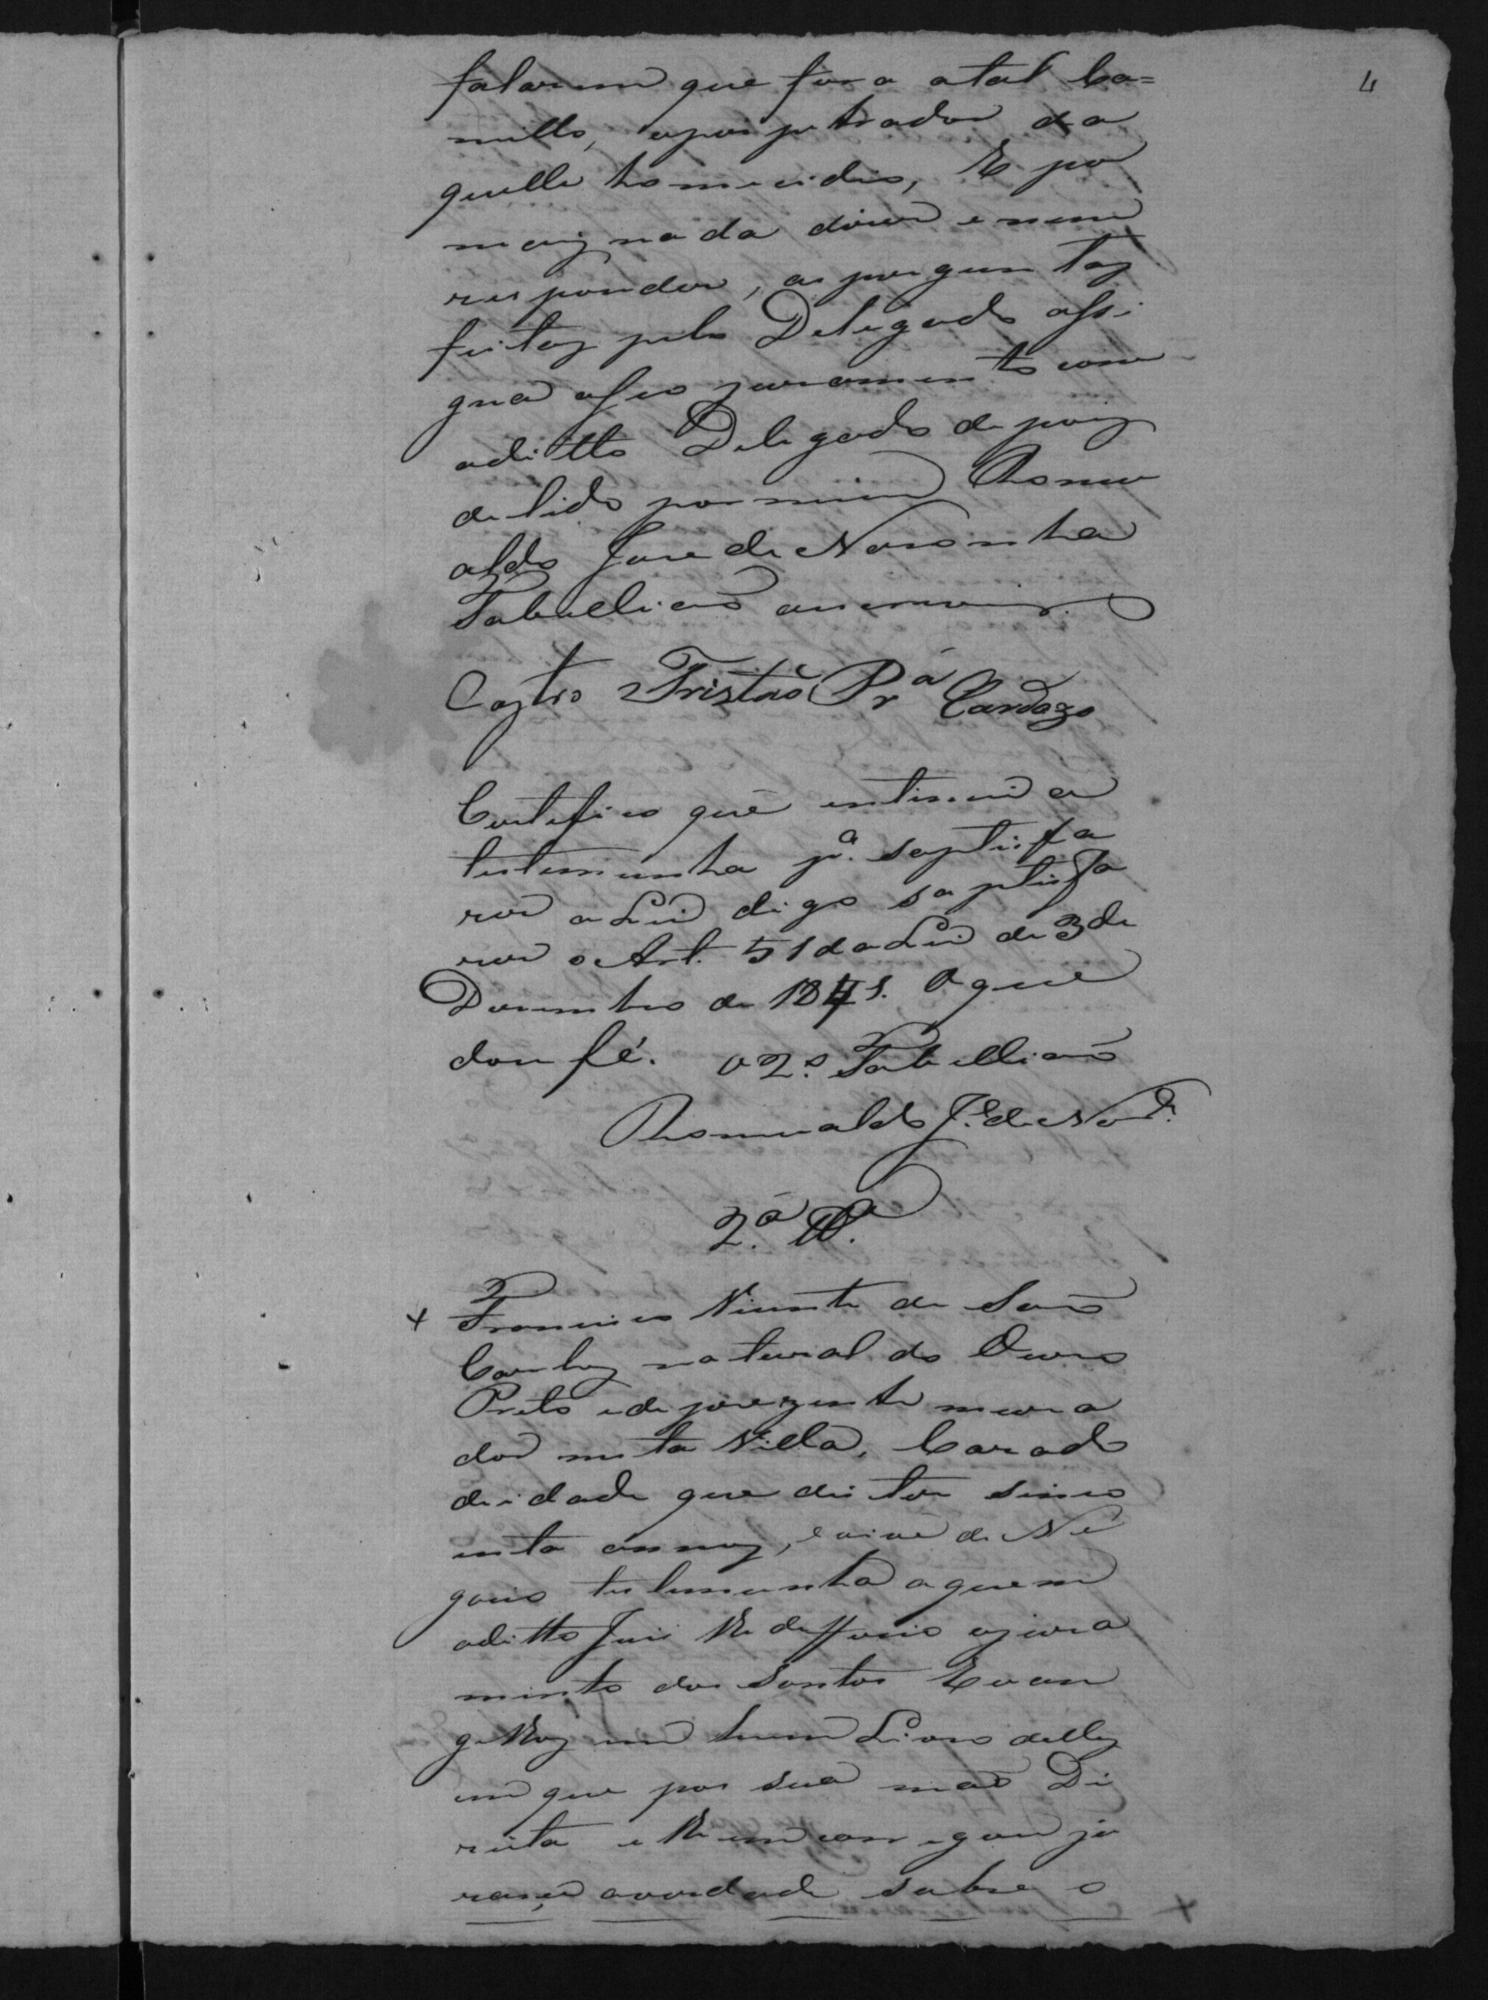 4
falarem que fora atal Ca=
millo, operpetrador da
quelle homecidio, E por
maiz nada dicer e nem
responder, as perguntaz
feitaz pelo Delegado assi
gna oseo juramento com
oditto Delegado depoiz
de lido por mim Romu
aldo Jose de Noronha
Tabellião
Castro Tristão Prª Cardozo
Certefico que intimei a
testemunha pª. saptisfa
zer a Lei digo saptisfa
zer o Art. 51 da Lei de 3 de
Desembro de 1841. O que
dou fé. O 2º. Tabellião
Romualdo Jé. de Norª.
2ª. Tª.
+ Francisco Vicente de São
Carlos natural do Ouro
Preto e de prezente mora
dor nesta Villa, Casado
de idade que diz ter sinco
enta annoz, e vive de Ne
gocio testemunha aquem
oditto Juis lhe defferio ojura
mento dos Santos Evan
gelhoz em hum Livro dellez
em que pos sua mão Di
reita e lhe encarregou ju
rasçe averdade sobre o